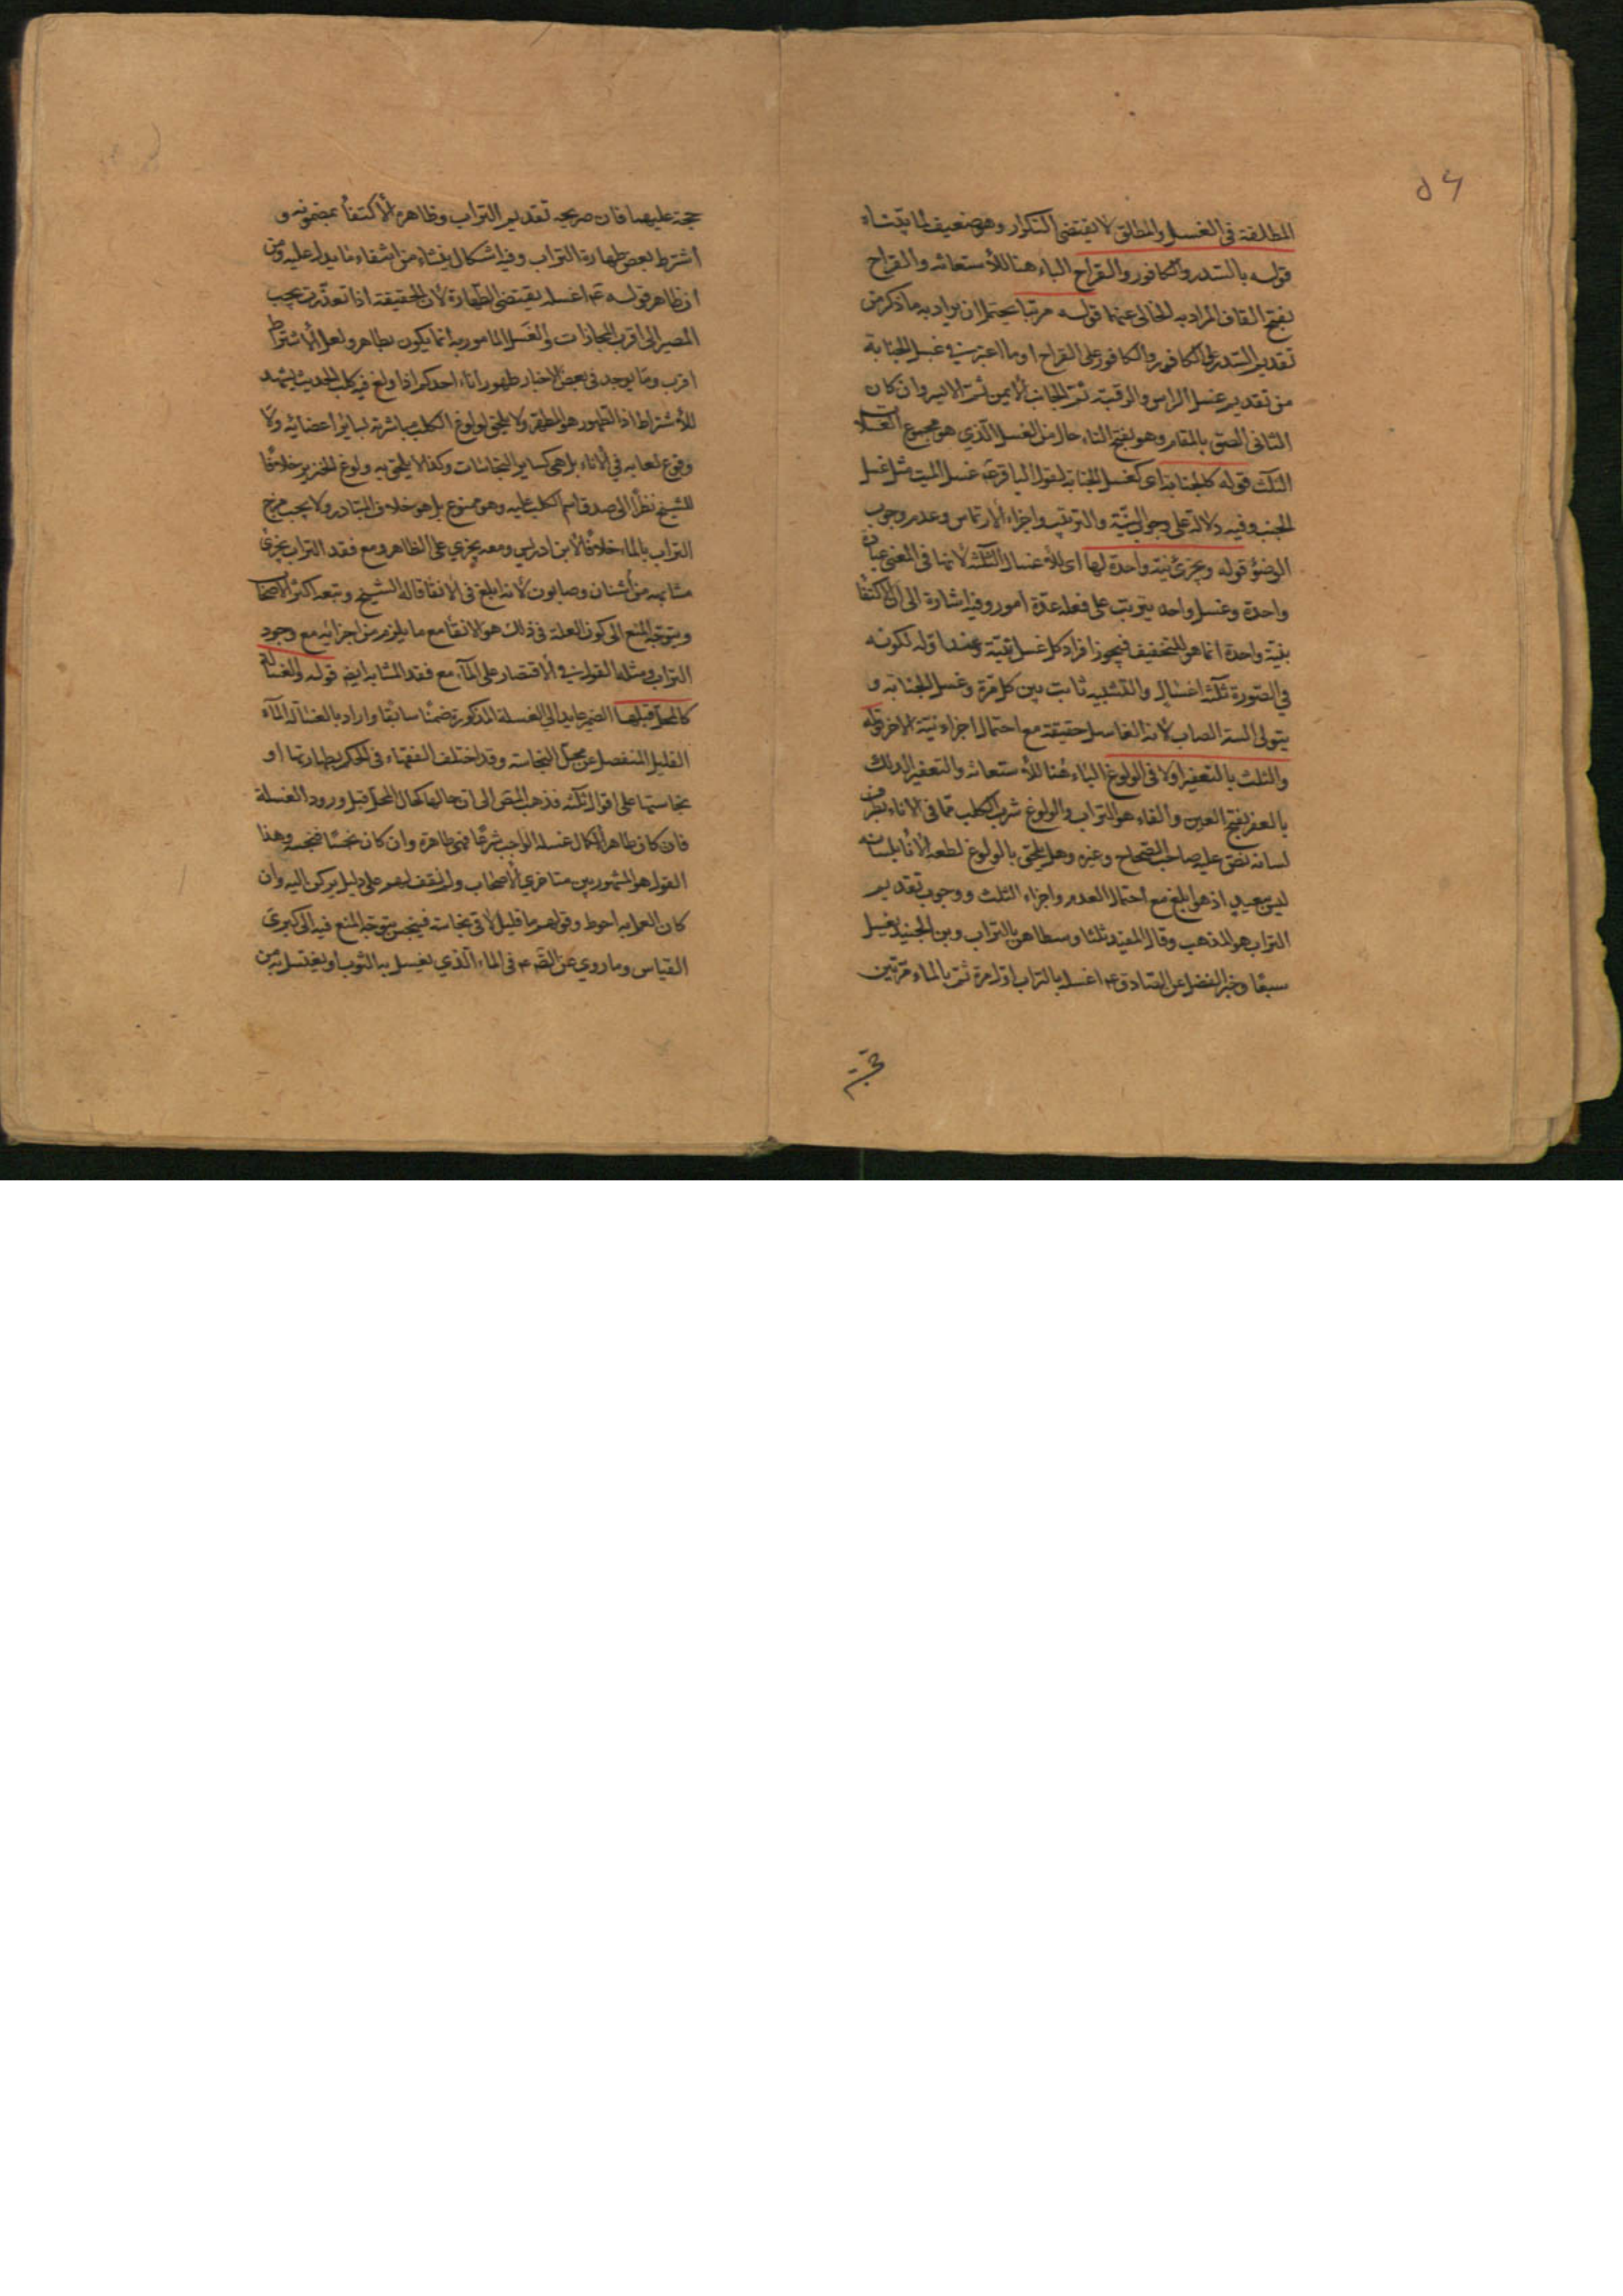 ٥٦
المطلقة فى الغسل والمطلق لا يقتضى التكرار وهو ضعيف لما بيّناه
قوله بالسدر والكافور والقراح الباء هنا للأستعانه والقراح
بفتح القاف المراد به الخالى عنهما قوله مرتبا يحتمل ان يراد به ما ذكر من
تقديم السدر على الكافور والكافور على القراح او ما اعتبر فى غسل الجنابة
من تقديم غسل الراس والرقبة ثم الجانب الأيمن ثم الايسر وان كان
الثانى الصق بالمقام وهو بفتح التاء حال من الغسل الّذي هو مجموع الغسلات
الثلث قوله كالجنابة اى كغسل الجنابة لقول الباقر ع غسل الميت مثل غسل
الجنب وفيه دلالة على وجوب النيّة والترتيب واجزاء الارتماس وعدم وجوب
الوضؤ قوله ويجزئ نية واحدة لها اى للأغسال الثلثة لأنها فى المعنى عبادة
واحدة وغسل واحد يترتب على فعله عدّة امور وفيه اشارة الى ان الاكتفأ
بنيّة واحدة انما هو للتخفيف فيجوز افراد كل غسل بنية وعند اوله لكونه
في الصّورة ثلثة اغسال والتشبيه ثابت بين كل مرة وغسل الجنابة و
يتولى النية الصاب لأنه الغاسل حقيقة مع احتمال اجزاء نية الاخر قوله
والثلث بالتعفير اولا فى الولوغ الباء هنا للأستعانه والتعفير الدلك
بالعفر بفتح العين والفاء هو التراب والولوغ شرب الكلب مما فى الاناء بطرف
لسانه نص عليه صاحب الصحاح وغيره وهل يلحق بالولوغ لطعه الأناء بلسانه
ليس ببعيد اذ هو ابلغ مع احتمال العدم واجزاء الثلث ووجوب تقديم
التراب هو المذهب وقال المفيد ثلثا وسطاهن بالتراب وبن الجنيد يغسل
سبعًا وخبر الفضل عن الصّادق ع اغسله بالتراب اوّل مرة ثم بالماء مرّتين
حجة
حجة عليهما فان صريحه تقديم التراب وظاهره الأكتفأ بمضمونه و
اشترط بعض طهارة التراب وفيه اشكال ينشاء من انتفاء ما يدل عليه ومن
ان ظاهر قوله ع اغسله يقتضى الطهارة لأن الحقيقة اذا تعذّرت يجب
المصير الى اقرب المجازات والغَسل المامور به انما يكون بطاهر ولعل الأشتراط
اقرب وما يوجد فى بعض الاخبار طهور اناء احدكم اذا ولغ فيه كلب الحديث يشهد
للأشتراط اذ الطهور هو المطهر ولا يلحق لولوغ الكلب مباشرته لسائر اعضائه ولا
وقوع لعابه في الأناء بل هى كساير النجاسات وكذا لا يلحق به ولوغ الخنزير خلافًا
للشيخ نظرا الى صدق اسم الكلب عليه وهو ممنوع بل هو خلاف المتبادر ولا يجب مزج
التراب بالماء خلافًا لأبن ادريس ومعه يجزي على الظاهر ومع فقد التراب يجزئ
مشابهه من أشنان وصابون لأنه ابلغ فى الانقا قاله الشيخ وتبعه اكثر الاصحاب
ويتوجّه المنع الى كون العلة فى ذلك هو الانقأ مع ما يلزم من اجزائه مع وجود
التراب ومثله القول فى الأقتصار على المآء مع فقد المشابه ايضًا قوله والغسالة
كالمحل قبلها الضمير عايد الى الغسلة المذكورة ضمنًا سابقًا واراد بالغسالة المآء
القليل المنفصل عن محلّ النجاسة وقد اختلف الفقهاء فى الحكم بطهارتها او
نجاستها على اقوال ثلثه فذهب المص الى ان حالها كحال المحل قبل ورود الغسلة
فان كان طاهرا لكمال غسله الواجب شرعًا فهى طاهرة وان كان نجسًا فنجسة وهذا
القول هو المشهور بين متاخري الأصحاب ولم نقف لهم على دليل يركن اليه وان
كان العمل به احوط وقولهم ما قليل لاقى نجاسة فينجس يتوجّه المنع فيه الى كبرى
القياس وما روي عن الصّ ع فى الماء الّذي يغسل به الثوب او يغتسل به من